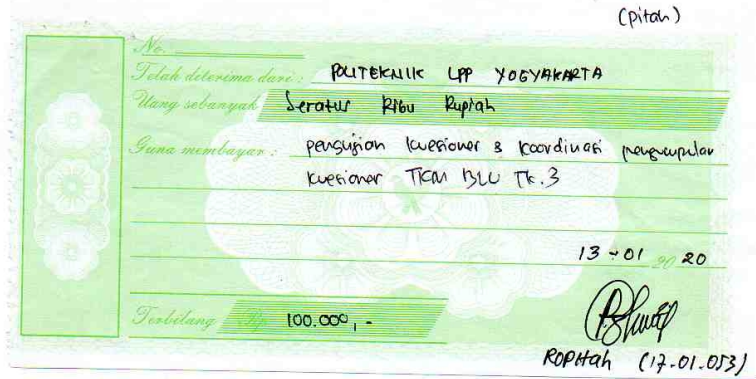 (Pitah)
No.
Telah diterima dari : POLITEKNIK LPP YOGYAKARTA
Uang sebanyak Seratus Ribu Rupiah
Guna membayar : pengujian kuesioner & koordinasi pengumpulan
kuesioner TKM BLU Tk.3
13 - 01 20 20
Terbilang Rp. 100.000,-
ROPITAH (17.01.053)